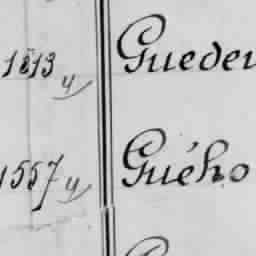 1813 y Guede
1557 y Guého